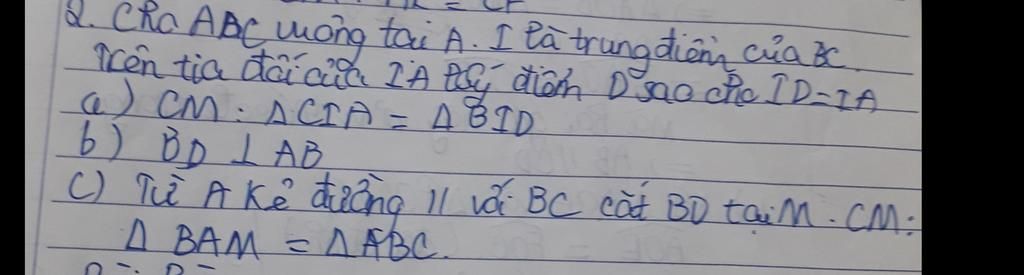 = CF
2. Cho ΔABC vuông tại A. I là trung điểm của BC
Trên tia đối của IA lấy điểm D sao cho ID=IA
a) CM: ΔCIA = ΔBID
b) BD ⊥ AB
c) Từ A kẻ đường // với BC cắt BD tại M. CM:
Δ BAM = ΔABC.